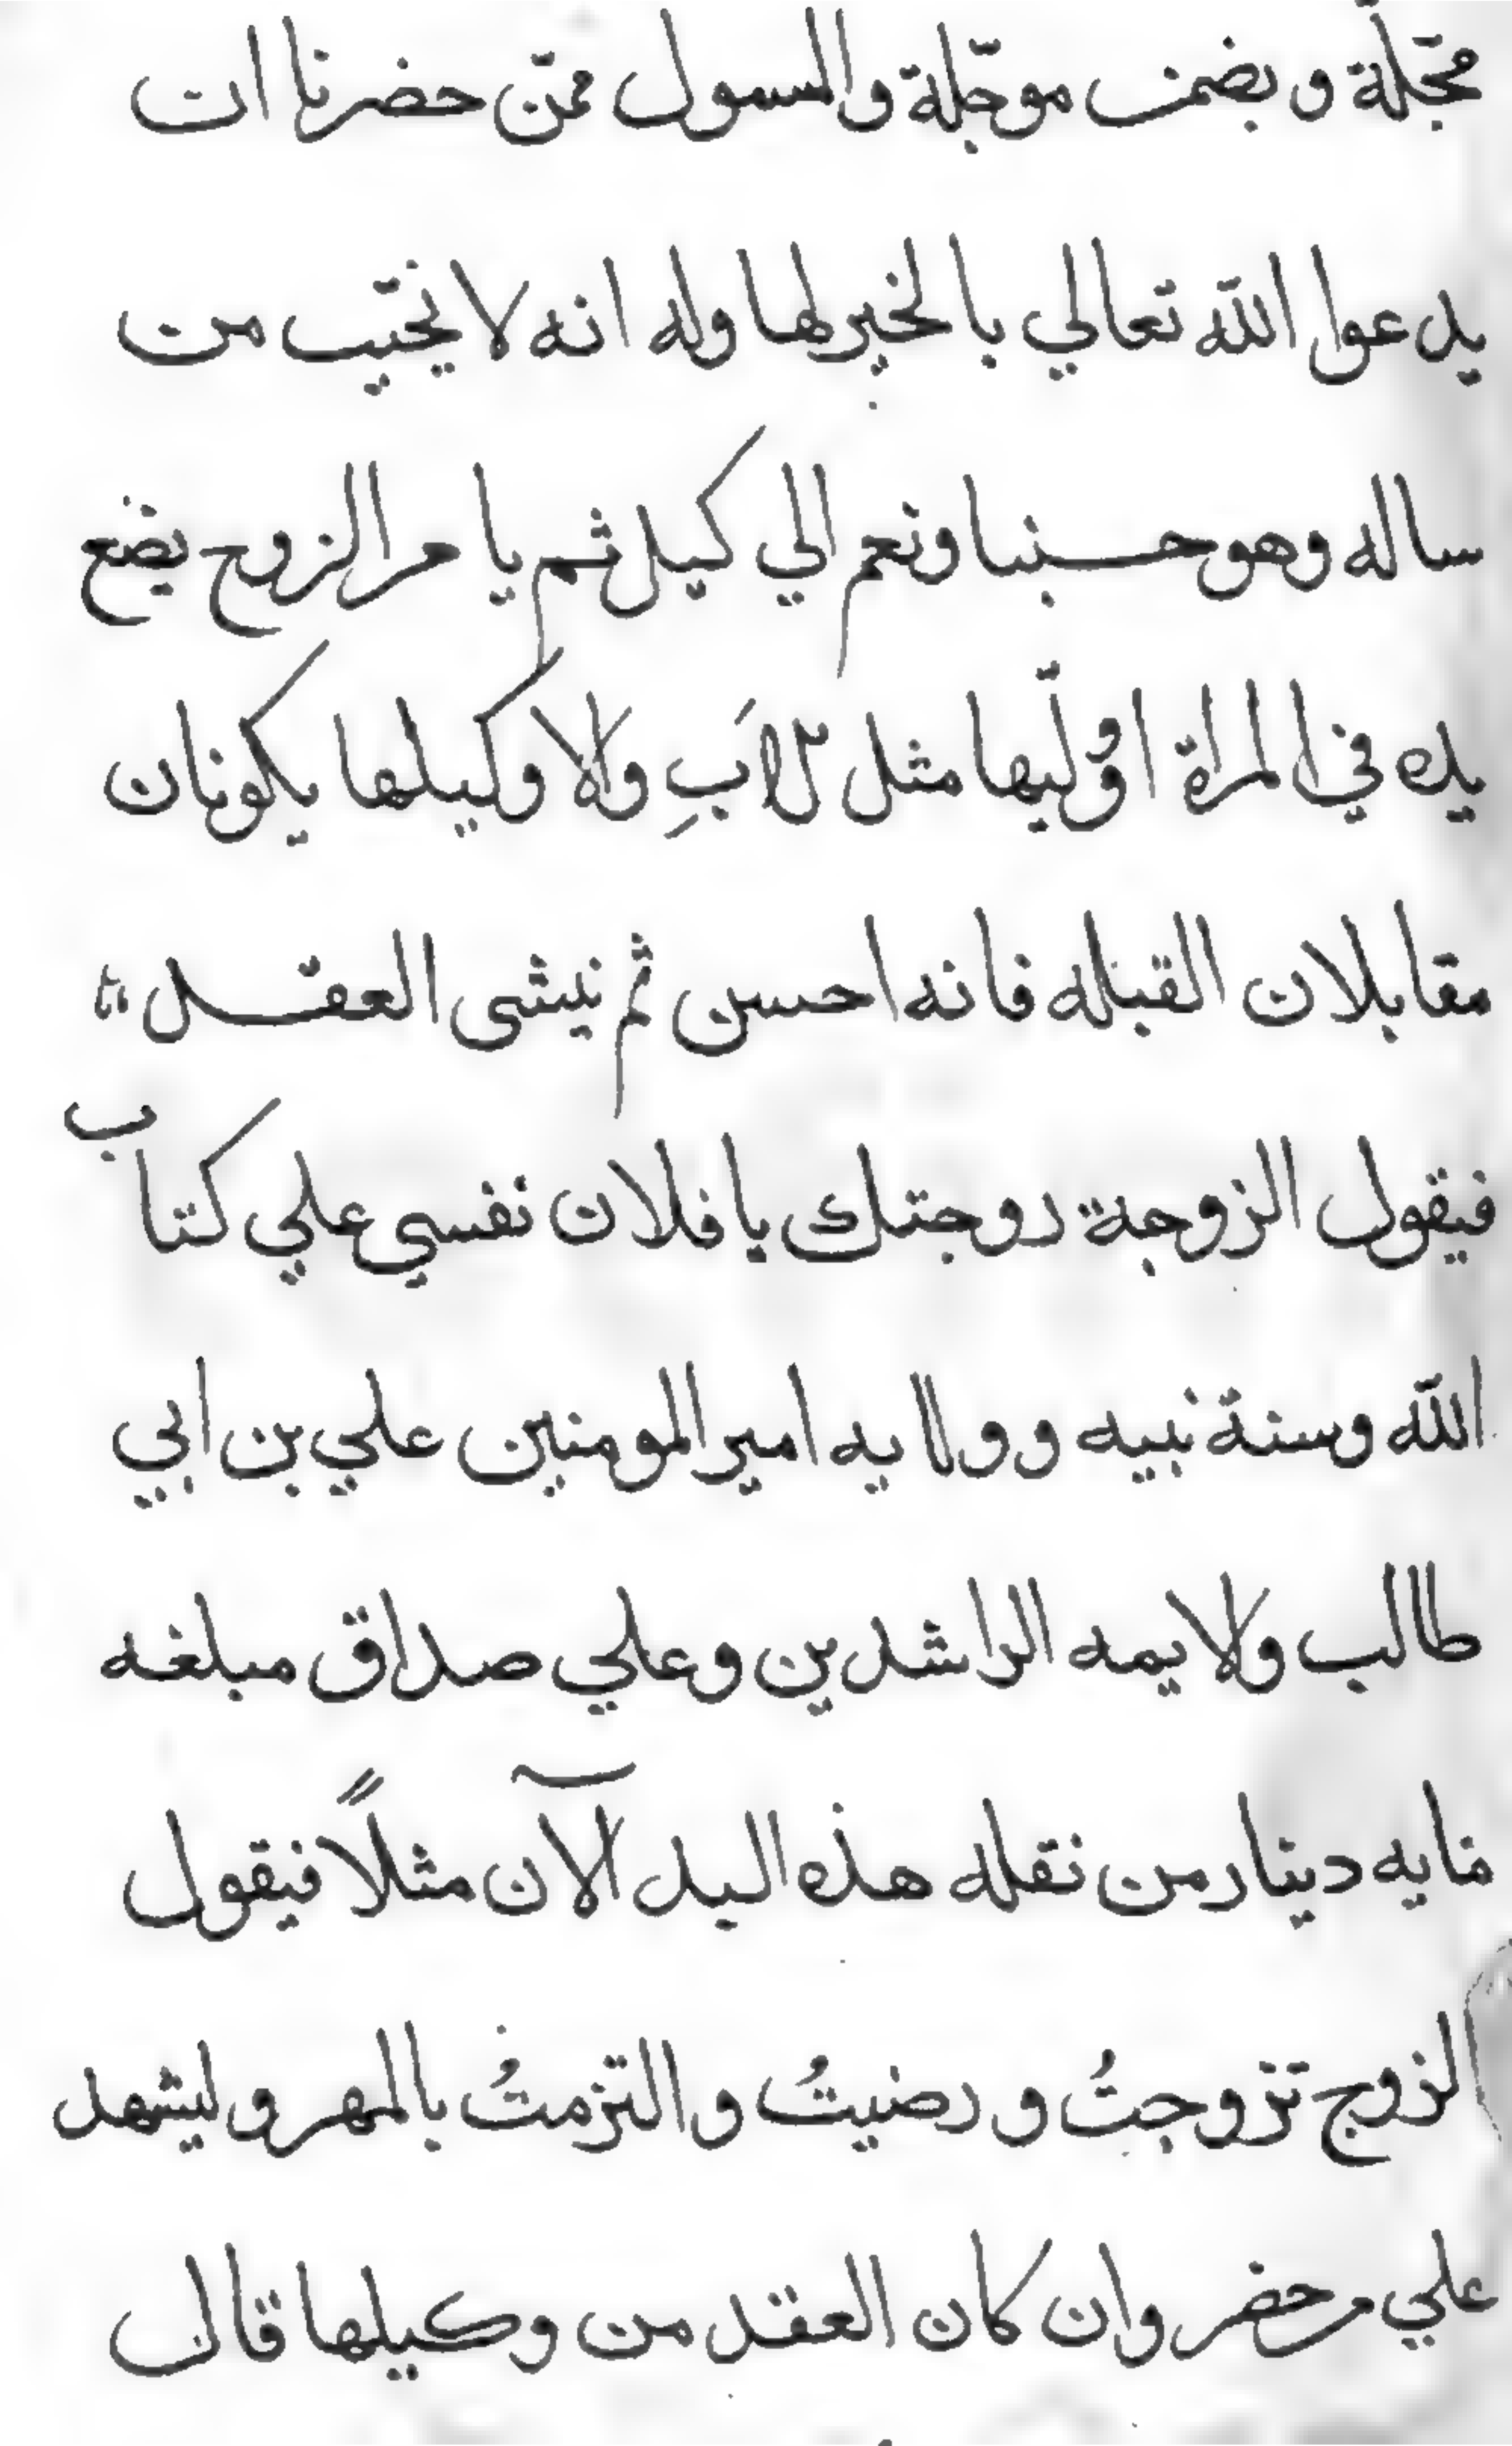 مجّلة وبضف موجّلة والسول ممّن حضرنا ان
يدعوا الله تعالي بالخير لها وله انه لا يخيّب من
ساله وهو حسبنا ونعم الي كيل ثم يا مر الزوج يضع
يده في المراة او وليّها مثل الابِ والا وكيلها يكونان
مقابلان القبله فانه احسن ثم نيشى العقد
فيقول الزوجة زوجتك يا فلان نفسي علي كتاب
الله وسنة نبيه وولايه امير المومنين علي بن ابي
طالب ولايمه الراشدين وعلي صداق مبلغه
مايه دينار من نقله هذه البلد الآن مثلاً فيقول
الزوج تزوجتُ ورضيتُ والتزمتُ بالمهر وليشهد
علي من حضر وان كان العقد من وكيلها قال